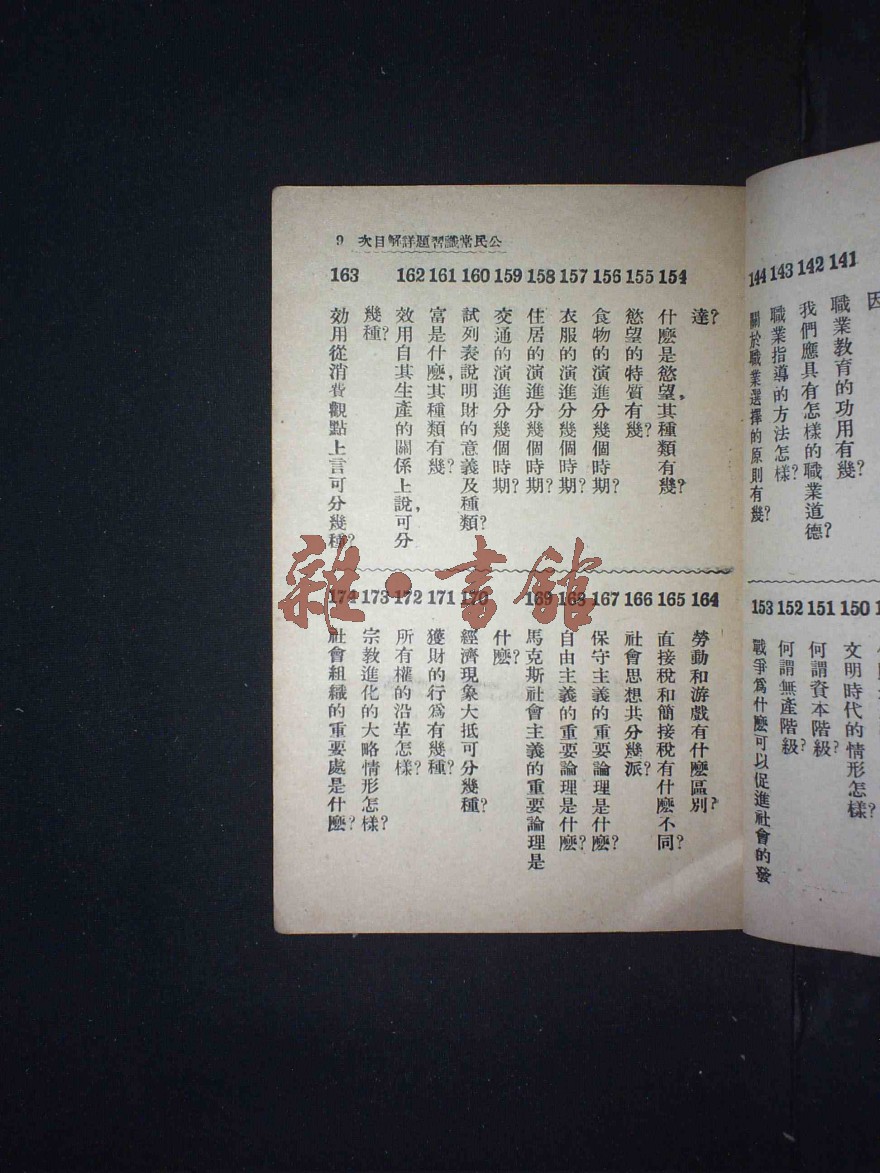 因
141 職業敎育的功用有幾?
142 我們應具有怎樣的職業道德?
143 職業指導的方法怎樣?
144 關於職業選擇的原則有幾?
150 文明時代的情形怎樣?
151 何謂資本階級?
152 何謂無產階級?
153 戰爭爲什麽可以促進社會的發
公民常識習題詳解目次 9
達?
154 什麽是慾望,其種類有幾?
155 慾望的特質有幾?
156 食物的演進分幾個時期?
157 衣服的演進分幾個時期?
158 住居的演進分幾個時期?
159 交通的演進分幾個時期?
160 試列表說明財的意義及種類?
161 富是什麽,其種類有幾?
162 效用自其生產的關係上說,可分
幾種?
163 効用從消費觀點上言可分幾種?
164 勞動和游戲有什麽區別?
165 直接稅和簡接稅有什麽不同?
166 社會思想共分幾派?
167 保守主義的重要論理是什麽?
168 自由主義的重要論理是什麽?
169 馬克斯社會主義的重要論理是
什麽?
170 經濟現象大抵可分幾種?
171 獲財的行爲有幾種?
172 所有權的沿革怎樣?
173 宗敎進化的大略情形怎樣?
174 社會組織的重要處是什麽?
雜·書館